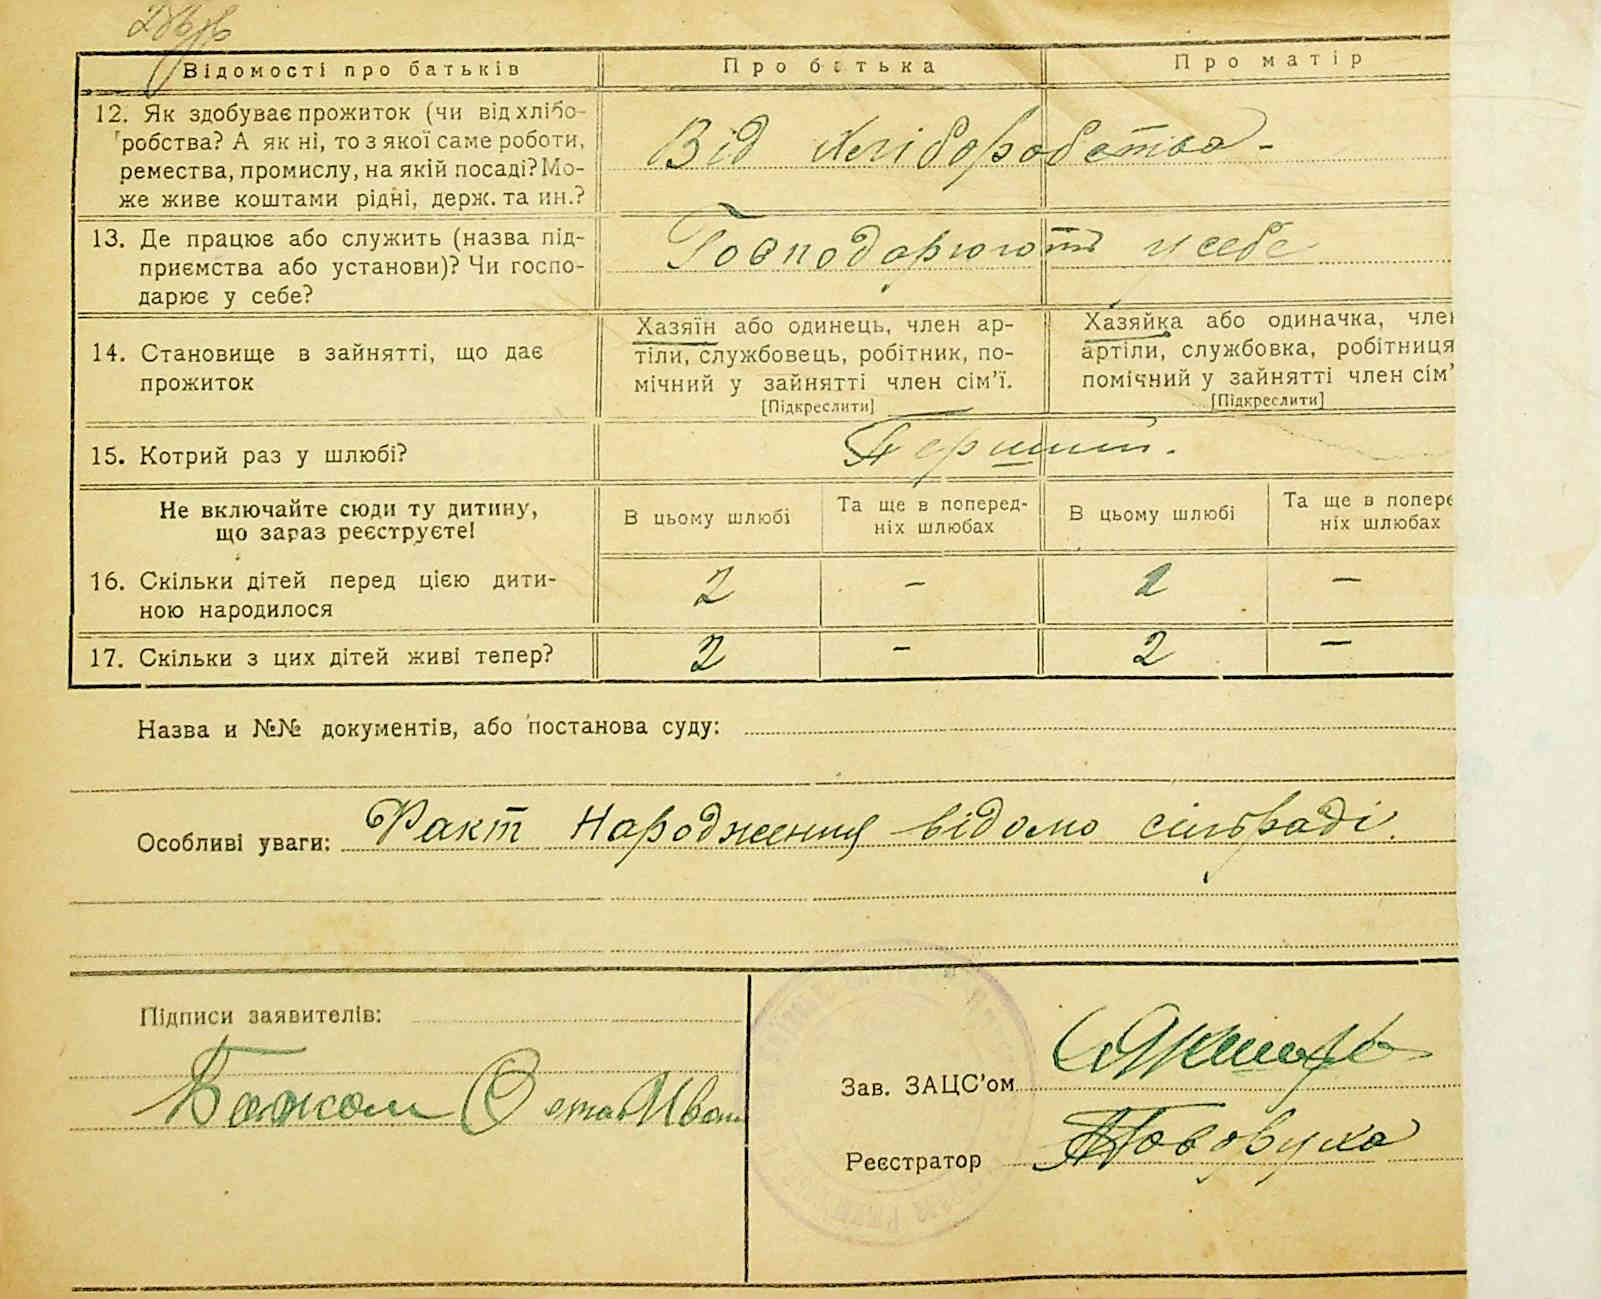 Відомості про батьків
Про батька
Про матір
12. Як здобуває прожиток (чи від хлібо-
робства? А як ні, то з якої саме роботи,
ремества, промислу, на якій посаді? Мо-
же живе коштами рідні, держ. та ин.?
Від хліборобства -
13. Де працює або служить (назва під-
приємства або установи)? Чи госпо-
дарює у себе?
Господарюють у себе
14. Становище в зайнятті, що дає
прожиток
Хазяїн або одинець, член ар-
тіли, службовець, робітник, по-
мічний у зайнятті член сім'ї.
[Підкреслити]
Хазяйка або одиначка, член
артіли, службовка, робітниця
помічний у зайнятті член сім'
[Підкреслити]
15. Котрий раз у шлюбі?
Перший.
Не включайте сюди ту дитину,
що зараз реєструєте!
В цьому шлюбі
Та ще в поперед-
ніх шлюбах
В цьому шлюбі
Та ще в попере
ніх шлюбах
16. Скільки дітей перед цією дити-
ною народилося
2 - 2 -
17. Скільки з цих дітей живі тепер?
2 - 2 -
Назва и №№ документів, або постанова суду:
Особливі уваги: Факт народження відомо сільраді.
Підписи заявителів:
Зав. ЗАЦС'ом
Реєстратор